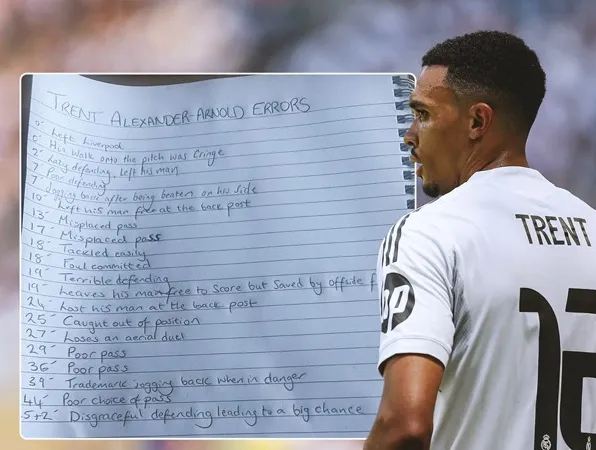 TRENT ALEXANDER-ARNOLD ERRORS
0' Left Liverpool
0' His walk onto the pitch was cringe
2' Lazy defending, left his man
7' Poor defending
7' Jogging back after being beaten on his side
10' Left his man free at the back post
13' Misplaced pass
17' Misplaced pass
18' Tackled easily
18' Foul committed
19' Terrible defending
19' Leaves his man free to score but saved by offside f
24' Lost his man at the back post
25' Caught out of position
27' Loses an aerial duel
29' Poor pass
36' Poor pass
39' Trademark jogging back when in danger
44' Poor choice of pass
5+2' Disgraceful defending leading to a big chance
TRENT
12
hp